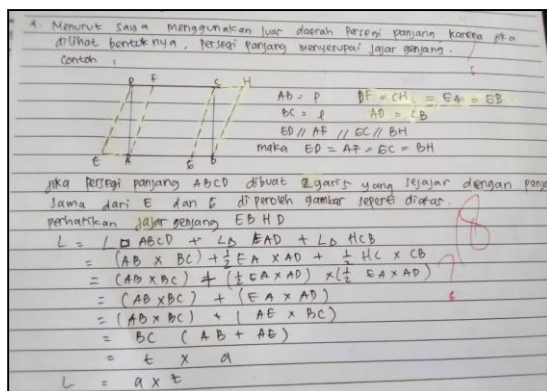 1. Menurut saya menggunakan luar daerah persegi panjang karena jika
dilihat bentuknya, persegi panjang menyerupai jajar genjang.
Contoh :
D F C H
E A G B
AB = p DF = CH = EA = EB
BC = l AD = CB
ED // AF // EC // BH
maka ED = AF = EC = BH
jika persegi panjang ABCD dibuat 2 garis yang sejajar dengan panj
sama dari E dan G diperoleh gambar seperti diatas.
perhatikan jajar genjang EBHD
L = L□ ABCD + L△ EAD + L△ HCB
= (AB × BC) + ½ EA × AD + ½ HC × CB
= (AB × BC) + (½ EA × AD) × (½ EA × AD)
= (AB × BC) + (EA × AD)
= (AB × BC) + (AE × BC)
= BC (AB + AE)
= t × a
L = a × t
8